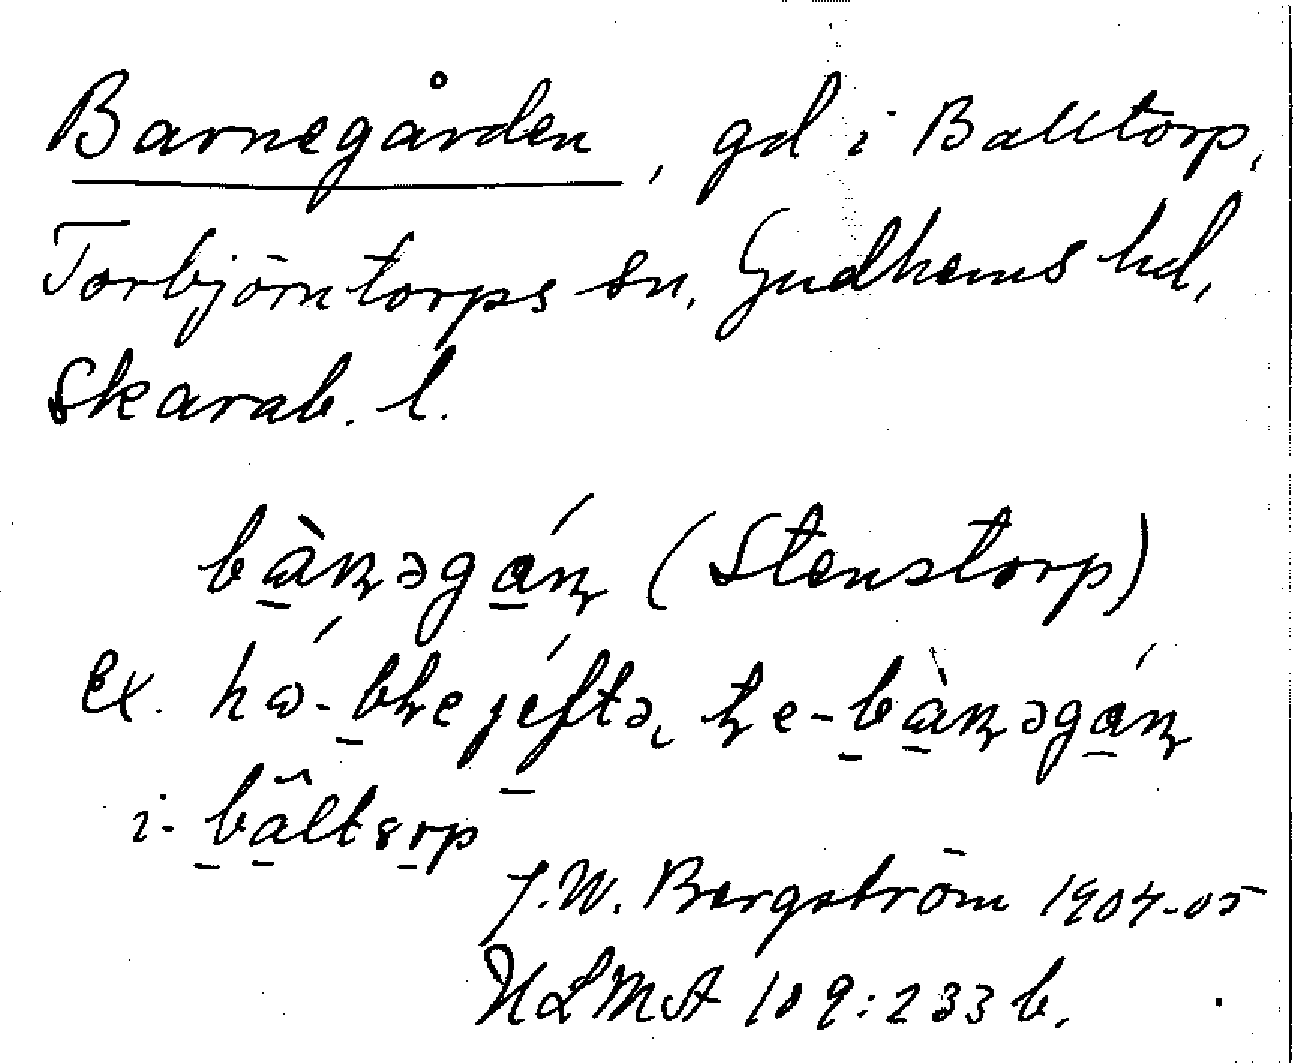 Barnegården, gd i Balltorp,
Torbjörntorps sn, Gudhems hd,
Skarab. l.
bàɳəgáɳ (Stenstorp)
Ex.
i- bâltorp
J.W. Bergström 1904-05
ULMA 109:233 b.